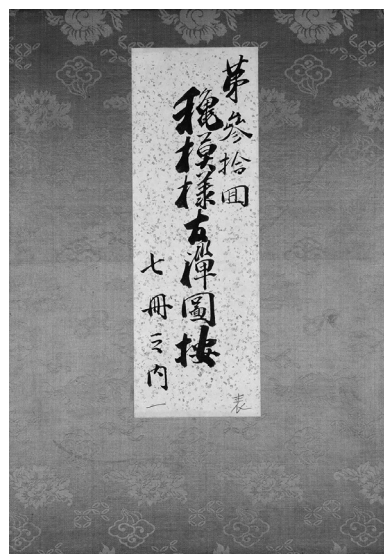 第參拾回
穐模様友禪圖按
七冊之内一
表